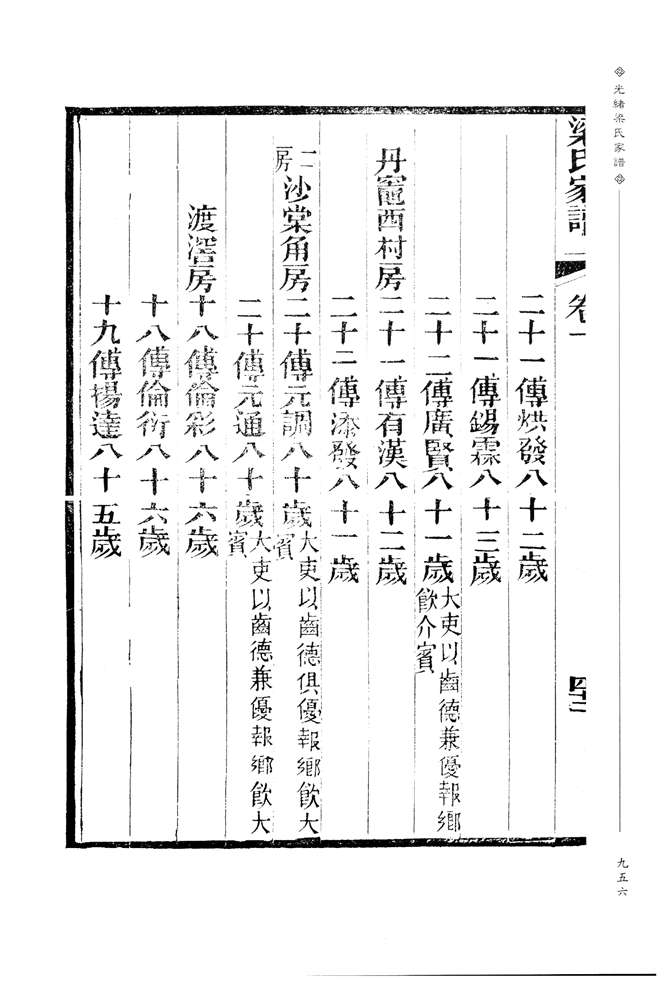 光緒梁氏家譜
九五六
梁氏家譜 卷一 四十二
二十一傳烘發八十二歲
二十一傳錫霖八十三歲
二十二傳廣賢八十一歲 大吏以齒德兼優報鄉飲介賓
丹竈西村房 二十一傳有漢八十二歲
二十二傳添發八十一歲
二房沙棠角房 二十傳元調八十歲 大吏以齒德俱優報鄉飲大賓
二十傳元通八十歲 大吏以齒德兼優報鄉飲大賓
渡滘房 十八傳倫彩八十六歲
十八傳倫衍八十六歲
十九傳揚達八十五歲